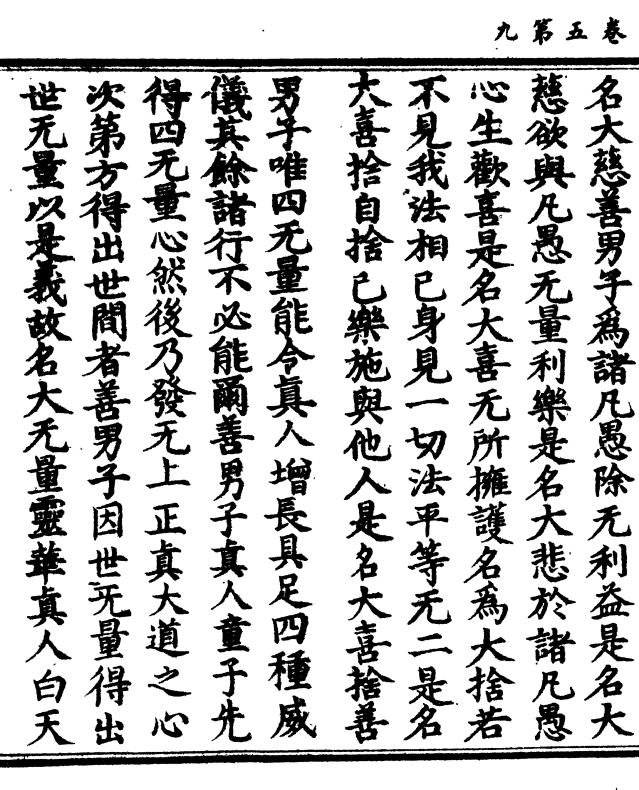 卷五第九
名大慈善男子爲諸凡愚除无利益是名大
慈欲與凡愚无量利樂是名大悲於諸凡愚
心生歡喜是名大喜无所擁護名爲大捨若
不見我法相已身見一切法平等无二是名
大喜捨自捨已樂施與他人是名大喜捨善
男子唯四无量能令真人增長具足四種威
儀其餘諸行不必能爾善男子真人童子先
得四无量心然後乃發无上正真大道之心
次第方得出世間者善男子因世无量得出
世无量以是義故名大无量靈華真人白天